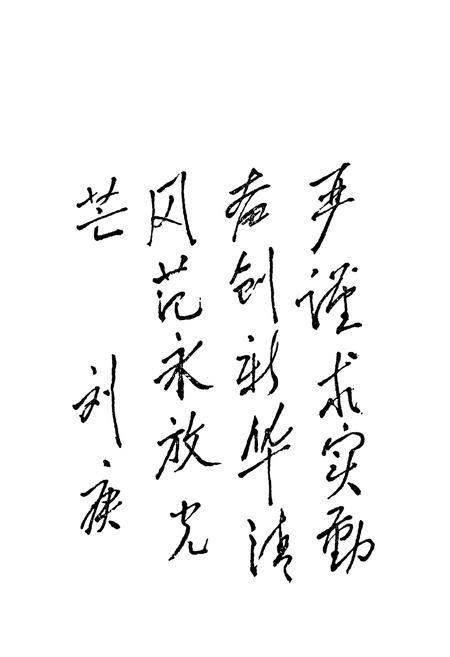 严谨求实勤
奋创新华清
风范永放光
芒 刘庚